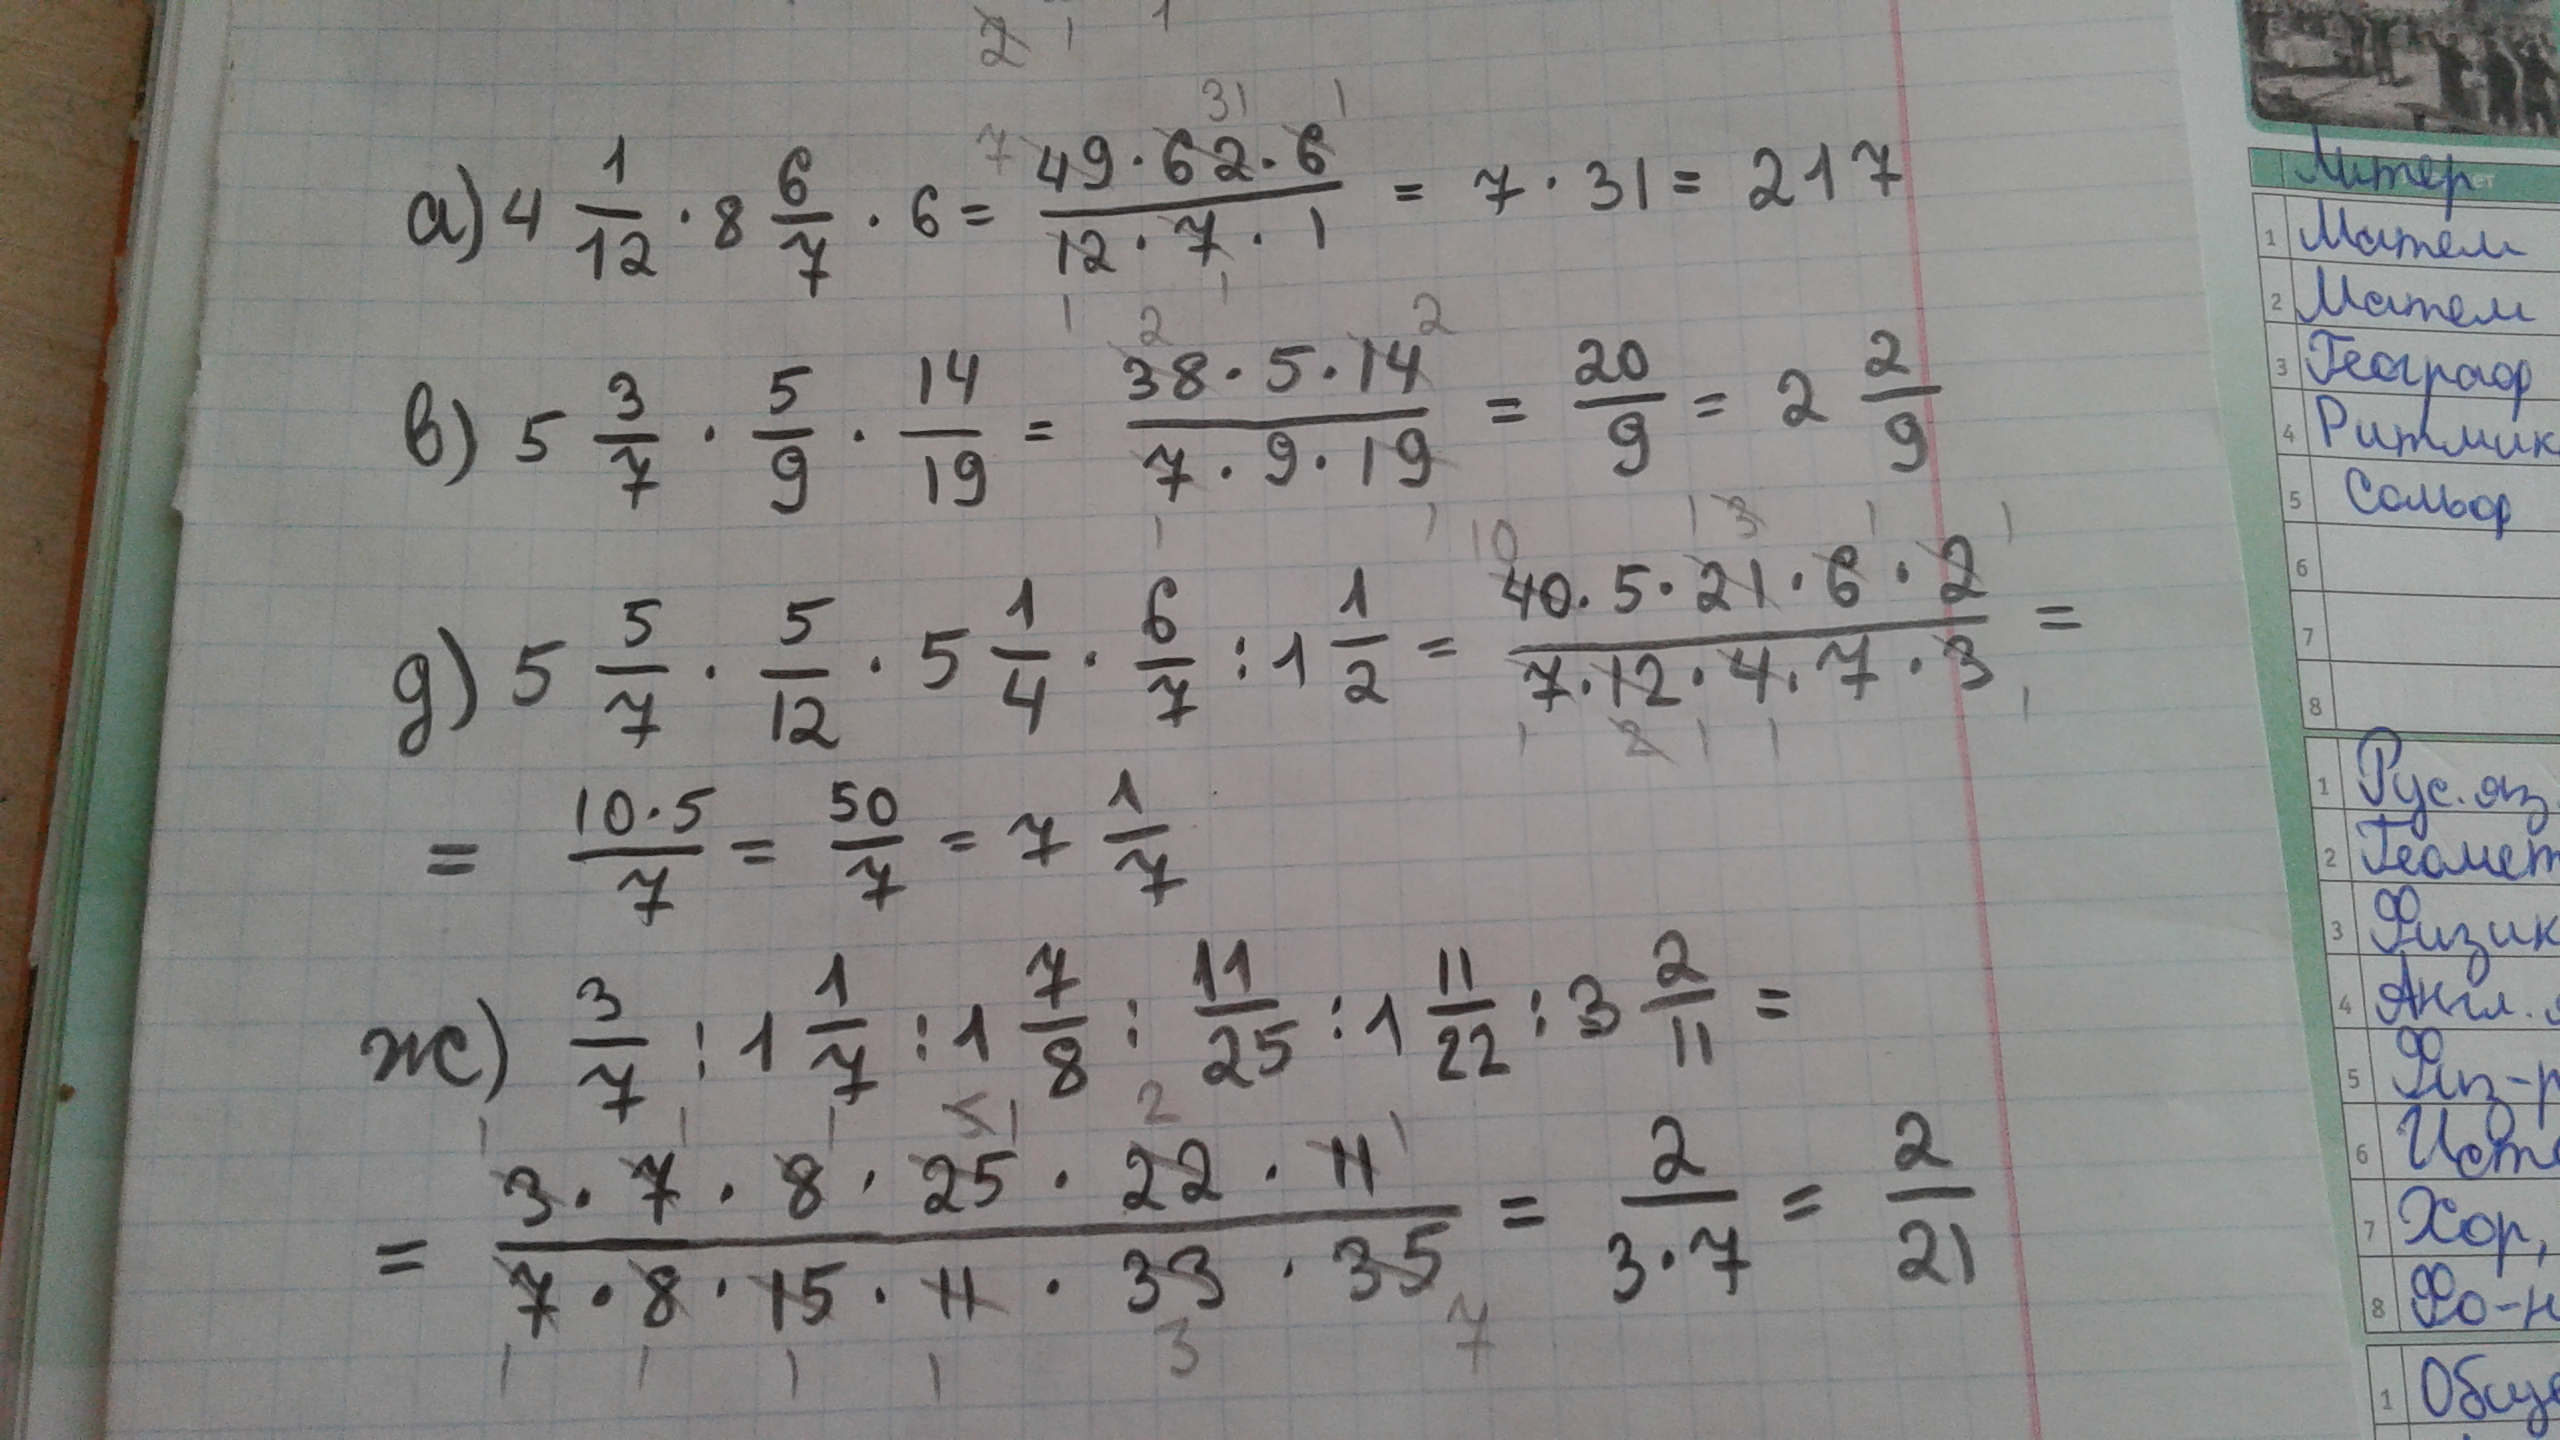 а) 4 1/12 · 8 6/7 · 6 = 49·62·6 / 12·7·1 = 7·31 = 217
в) 5 3/7 · 5/9 · 14/19 = 38·5·14 / 7·9·19 = 20/9 = 2 2/9
д) 5 5/7 · 5/12 · 5 1/4 · 6/7 : 1 1/2 = 40·5·21·6·2 / 7·12·4·7·3 =
= 10·5/7 = 50/7 = 7 1/7
ж) 3/7 : 1 1/7 : 1 7/8 : 11/25 : 1 11/22 : 3 2/11 =
= 3·7·8·25·22·11 / 7·8·15·11·33·35 = 2/3·7 = 2/21
Литер
1 Матем
2 Матем
3 Географ
4 Ритмик
5 Сольф
6
7
8
1 Рус. яз.
2 Геомет
3 Физик
4 Англ.
5 Физ-р
6 Исто
7 Хор,
8 Фо-н
1 Обще